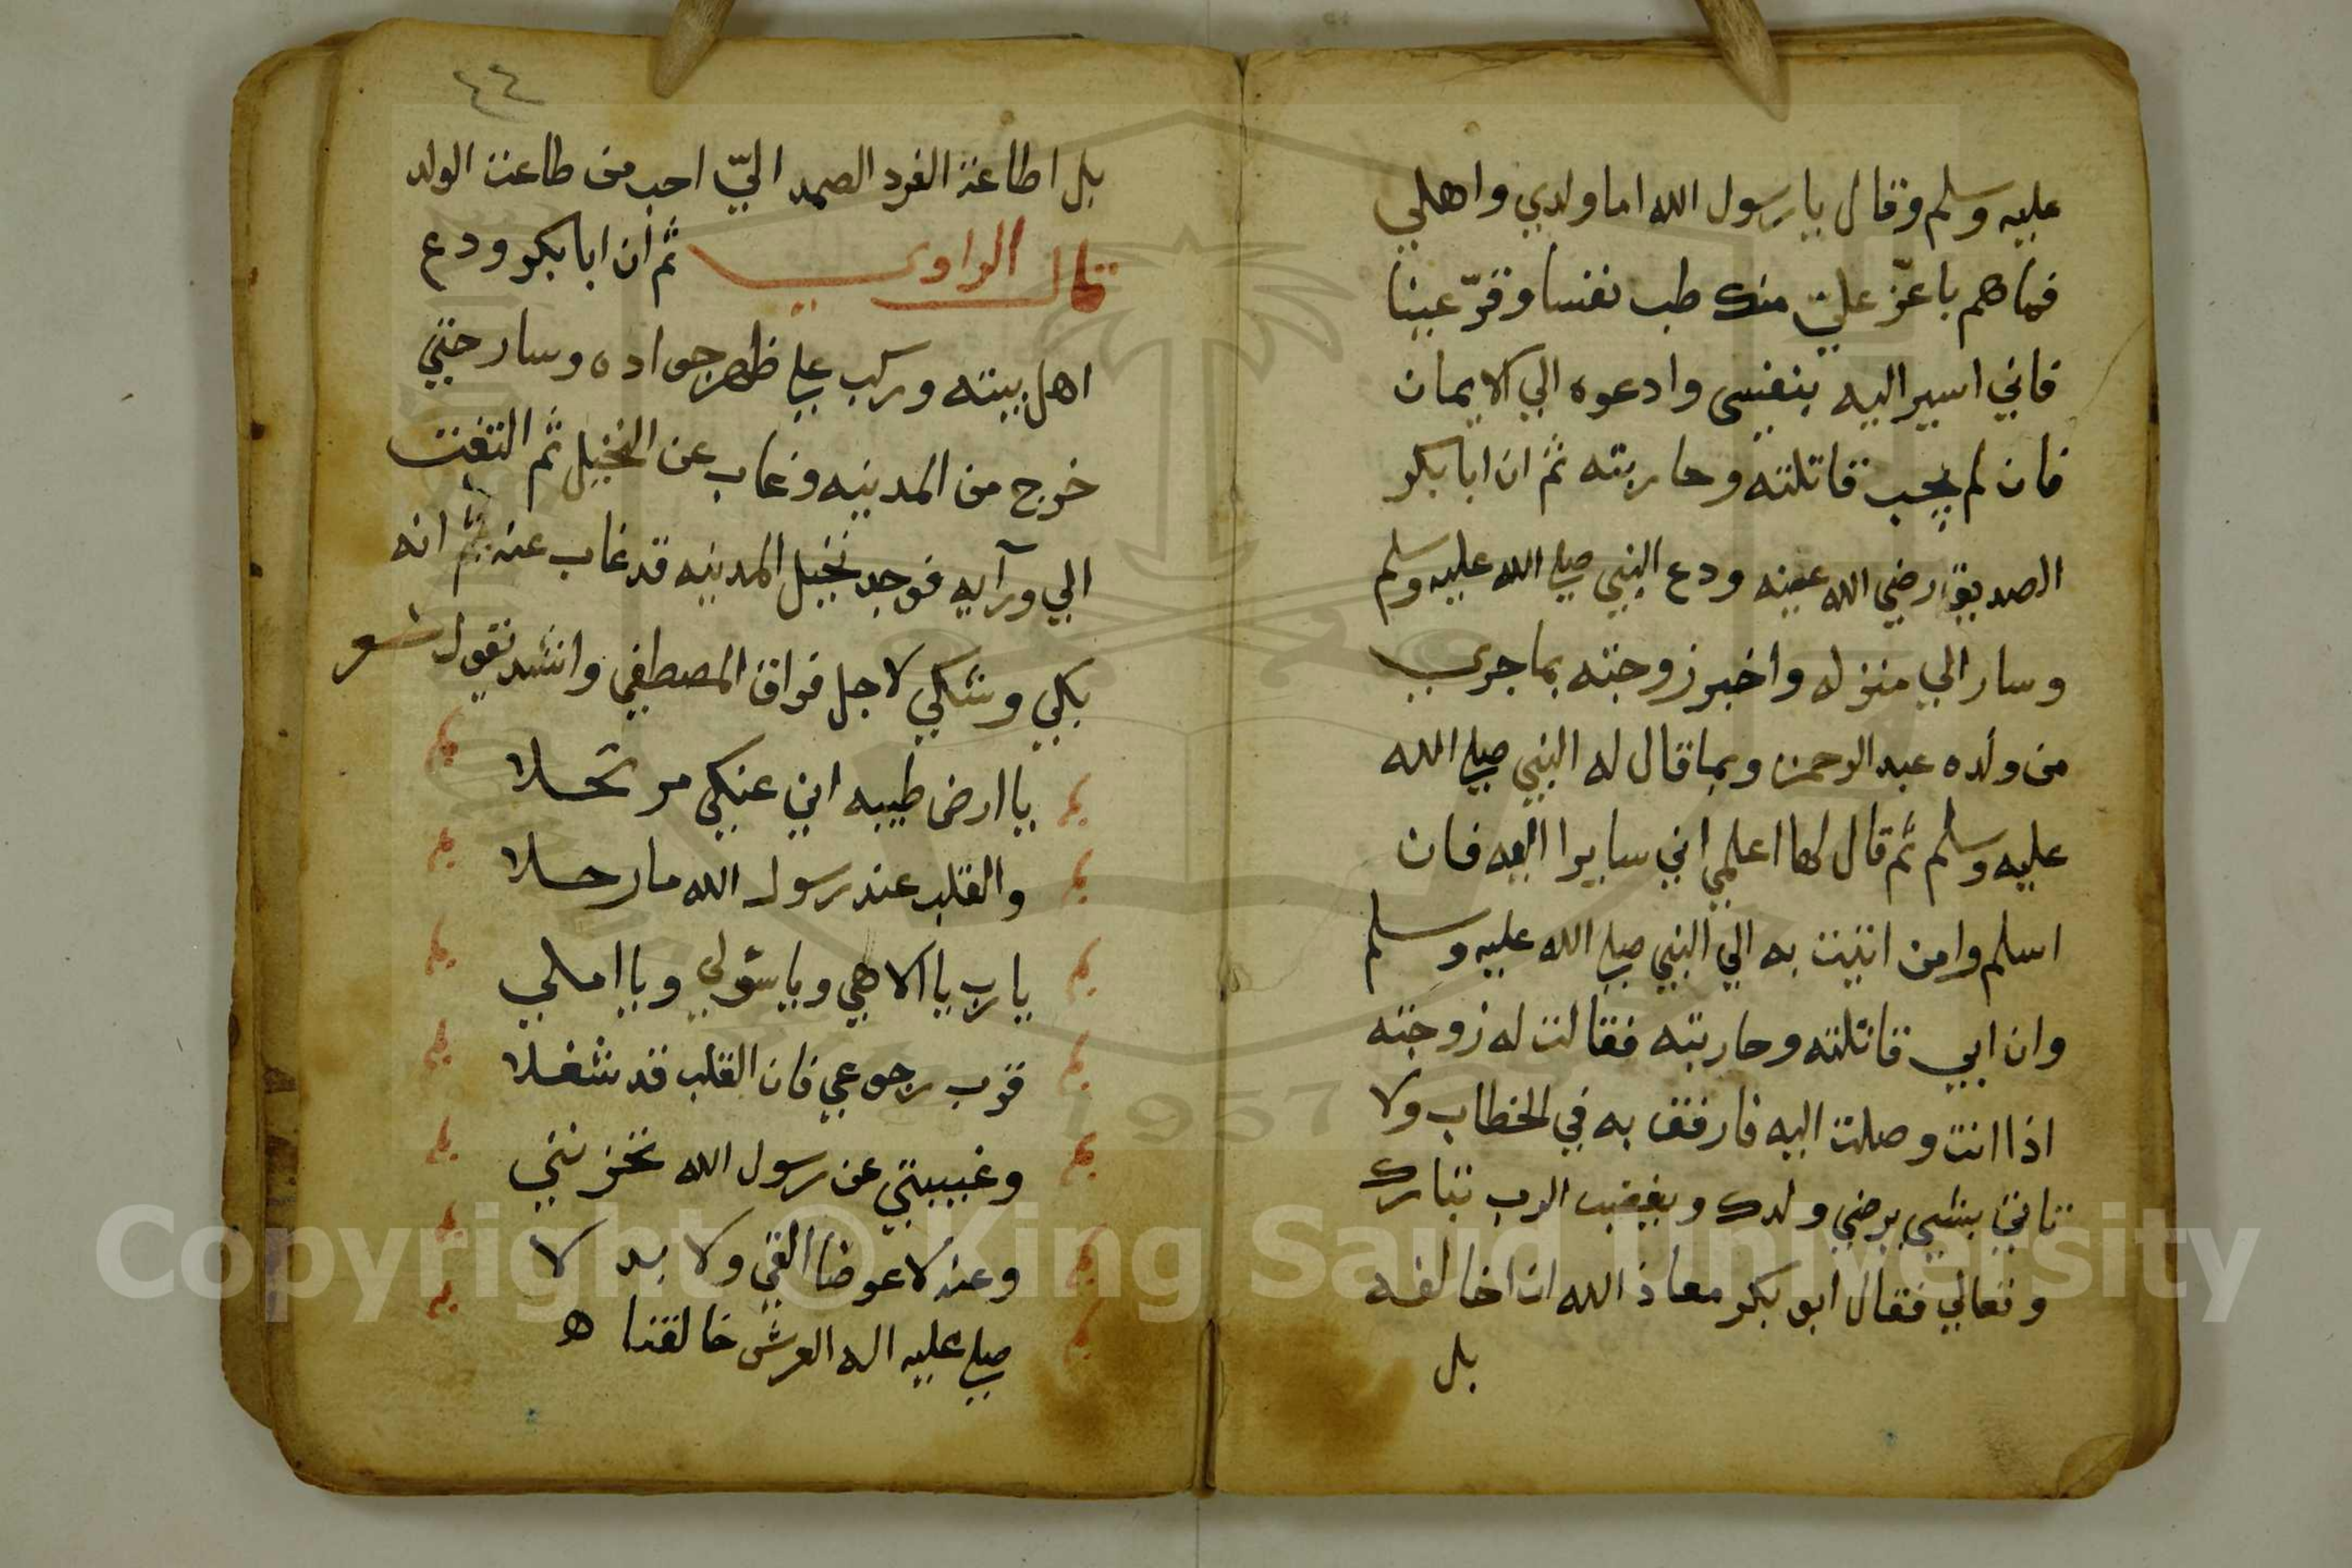 عليه وسلم وقال يا رسول الله اما ولدي واهلي
فماهم باعزّ عليّ منك طب نفسا وقرّ عينا
فاني اسير اليه بنفسي وادعوه الي الايمان
فان لم يجب قاتلته وحاربته ثم ان ابا بكر
الصديق رضي الله عنه ودع النبي صلي الله عليه وسلم
وسار الي منزله واخبر زوجته بما جري
من ولده عبد الرحمن وبما قال له النبي صلي الله
عليه وسلم ثم قال لها اعلمي اني سايرا اليه فان
اسلم وامن اتيت به الي النبي صلي الله عليه وسلم
وان ابي قاتلته وحاربته فقالت له زوجته
اذا انت وصلت اليه فارفق به في الخطاب ولا
تاتي بشي يرضي ولدك ويغضب الرب تبارك
وتعالي فقال ابو بكر معاذ الله ان اخالفه
بل
٤٤
بل اطاعة الفرد الصمد اليّ احب من طاعت الولد
قال الراوي ثم ان ابا بكر ودع
اهل بيته وركب علي ظهر جواده وسار حتي
خرج من المدينه وغاب عن النخيل ثم التفت
الي ورآيه فوجد نخيل المدينه قد غاب عنه ثم انه
بكي وشكي لاجل فراق المصطفي وانشد يقول شعر
يا ارض طيبه اني عنكي مرتحلا
والقلب عند رسول الله ما رحلا
يا رب يا الاهي ويا سؤلي ويا املي
قرب رجوعي فان القلب قد شغلا
وغيبتي عن رسول الله تحزنني
وعنه لا عوضا القي ولا بدلا
صلي عليه اله العرش خالقنا ه
Copyright © King Saud University
1957